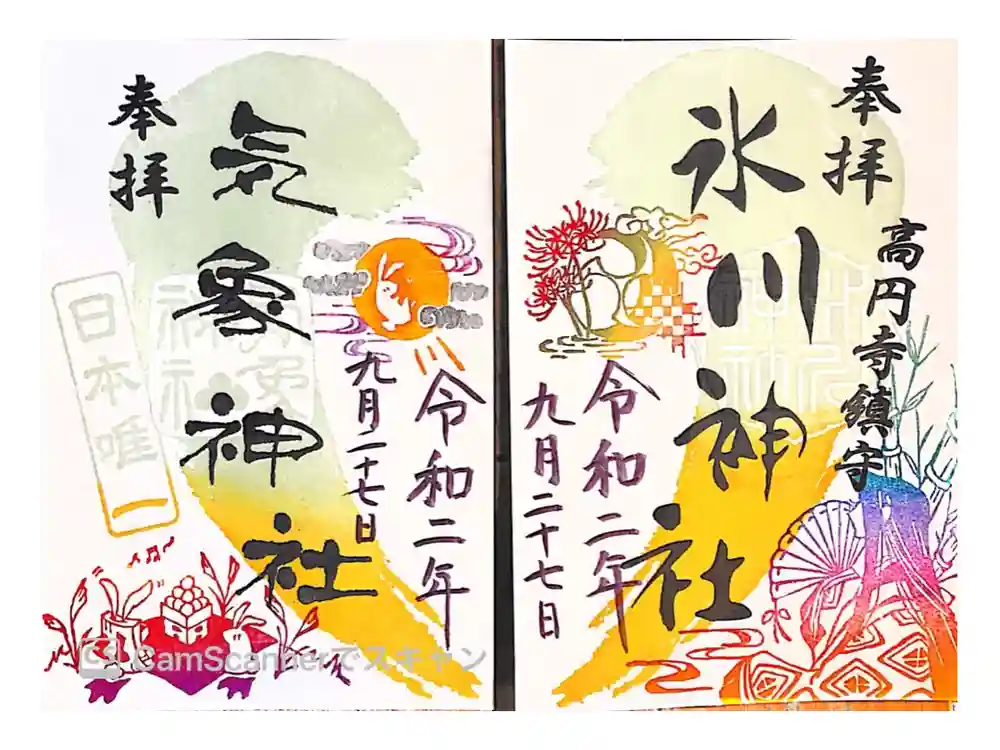 奉拝
高円寺鎮守
氷川神社
令和二年
九月二十七日
令和二年
九月二十七日
気象神社
奉拝
日本唯一
CamScannerでスキャン